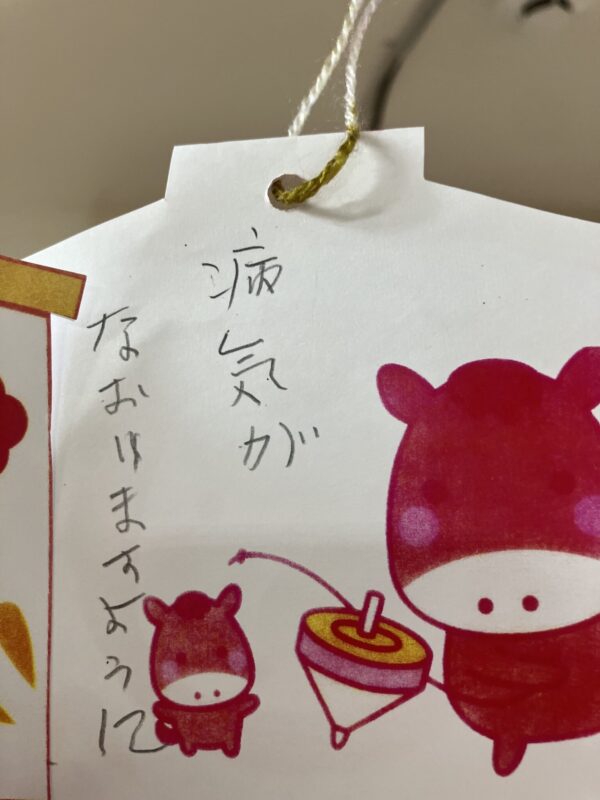 病気が
なおりますように